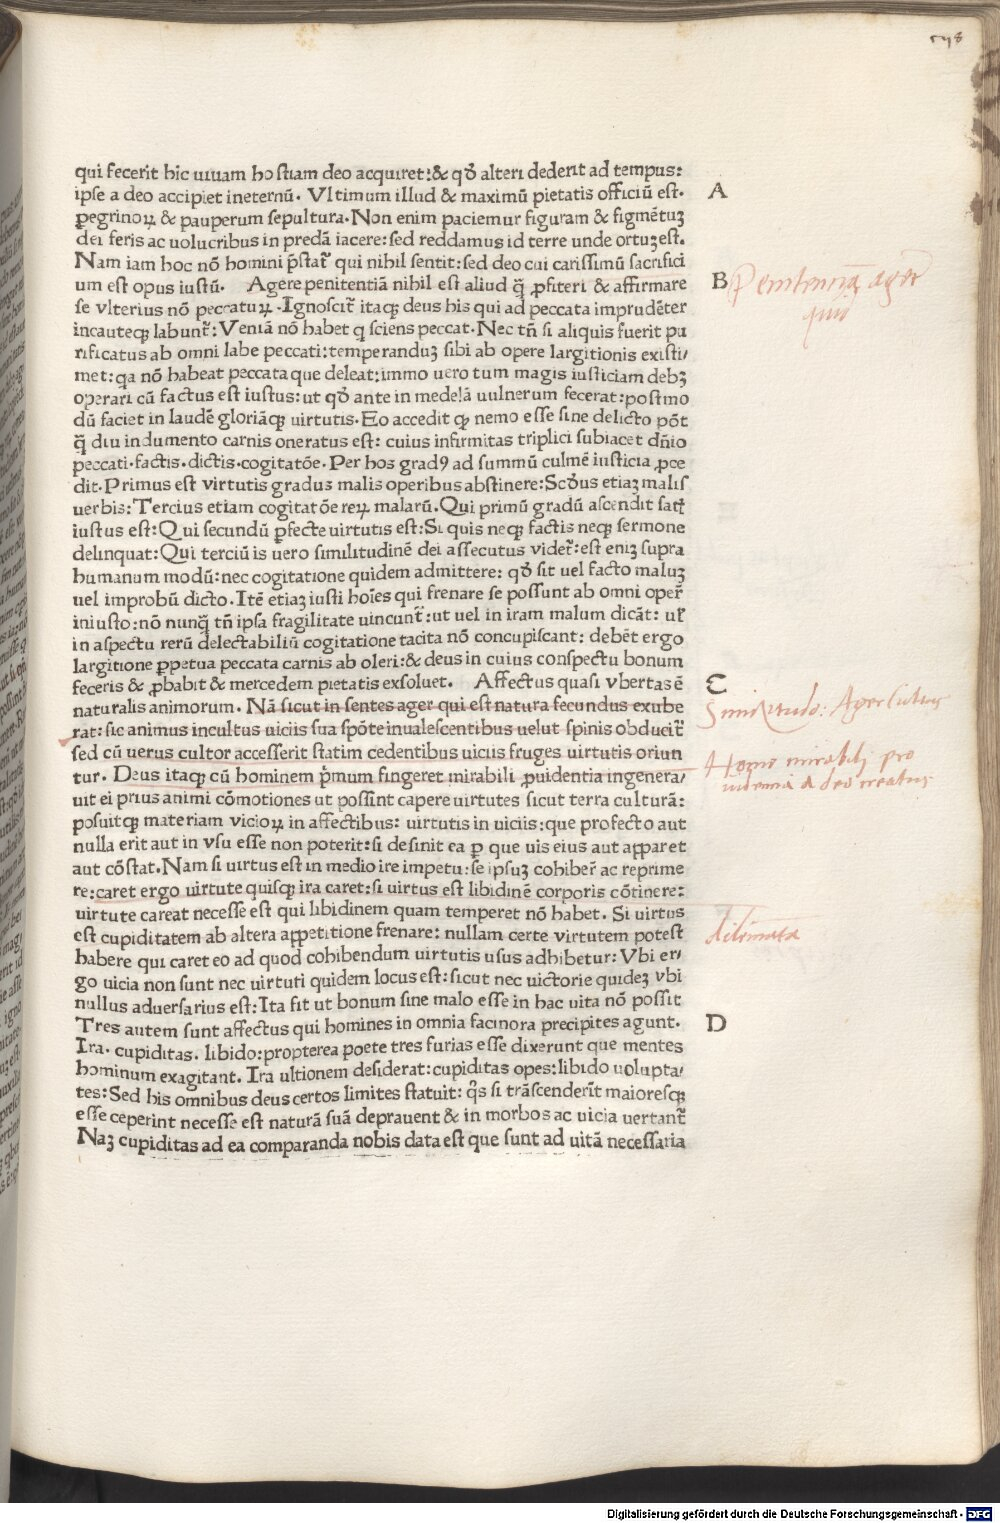 qui fecerit hic uiuam hostiam deo acquiret:& qđ alteri dederit ad tempus:
ipse a deo accipiet ineternū. Vltimum illud & maximū pietatis officiū est.
A
ꝑegrinoꝝ & pauperum sepultura. Non enim paciemur figuram & figmētuꝫ
dei feris ac uolucribus in predā iacere: sed reddamus id terre unde ortuꝫ est.
Nam iam hoc nō homini p̄statᷣ qui nihil sentit: sed deo cui carissimū sacrifici
um est opus iustū. Agere penitentiā nihil est aliud q̄ ꝓfiteri & affirmare
B
se vlterius nō peccatuꝝ. Ignoscitᷣ itaqꝫ deus his qui ad peccata imprudēter
incauteqꝫ labuntᷣ: Veniā nō habet q sciens peccat. Nec tn̄ si aliquis fuerit pu
rificatus ab omni labe peccati: temperanduꝫ sibi ab opere largitionis existi/
met: qa nō habeat peccata que deleat: immo uero tum magis iusticiam debꝫ
operari cū factus est iustus: ut qđ ante in medelā uulnerum fecerat: postmo
dū faciet in laudē gloriāqꝫ uirtutis. Eo accedit qꝫ nemo esse sine delicto pōt
q̄ diu indumento carnis oneratus est: cuius infirmitas triplici subiacet dn̄io
peccati. factis. dictis. cogitatōe. Per hos gradꝰ ad summū culmē iusticia ꝓce
dit. Primus est virtutis gradus malis operibus abstinere: Scđus etiaꝫ malis
uerbis: Tercius etiam cogitatōe reꝝ malarū. Qui primū gradū ascendit satᷣ
iustus est: Qui secundū ꝑfecte uirtutis est: Si quis neqꝫ factis neqꝫ sermone
delinquat: Qui terciū is uero similitudinē dei assecutus videtᷣ: est eniꝫ supra
humanum modū: nec cogitatione quidem admittere: qđ sit uel facto maluꝫ
uel improbū dicto. Itē etiaꝫ iusti hoīes qui frenare se possunt ab omni operᷣ
iniusto: nō nunq̄ tn̄ ipsa fragilitate uincuntᷣ: ut uel in iram malum dicāt: ul̄
in aspectu rerū delectabiliū cogitatione tacita nō concupiscant: debēt ergo
largitione ꝑpetua peccata carnis ab oleri: & deus in cuius conspectu bonum
feceris & ꝓbabit & mercedem pietatis exsoluet. Affectus quasi vbertas ē
C
naturalis animorum. Nā sicut in sentes ager qui est natura fecundus exube
rat: sic animus incultus uiciis sua spōte inualescentibus uelut spinis obducitᷣ
sed cū uerus cultor accesserit statim cedentibus uiciis fruges uirtutis oriun
tur. Deus itaqꝫ cū hominem p̄mum fingeret mirabili ꝓuidentia ingenera/
uit ei prius animi cōmotiones ut possint capere uirtutes sicut terra culturā:
posuitqꝫ materiam vicioꝝ in affectibus: uirtutis in uiciis: que profecto aut
nulla erit aut in vsu esse non poterit: si desinit ea ꝑ que uis eius aut apparet
aut cōstat. Nam si uirtus est in medio ire impetu: se ipsuꝫ cohiberᷣ ac reprime
re: caret ergo uirtute quisqꝫ ira caret: si uirtus est libidinē corporis cōtinere:
uirtute careat necesse est qui libidinem quam temperet nō habet. Si uirtus
est cupiditatem ab altera appetitione frenare: nullam certe virtutem potest
habere qui caret eo ad quod cohibendum uirtutis usus adhibetur: Vbi er/
go uicia non sunt nec uirtuti quidem locus est: sicut nec uictorie quideꝫ vbi
nullus aduersarius est: Ita fit ut bonum sine malo esse in hac uita nō possit
Tres autem sunt affectus qui homines in omnia facinora precipites agunt.
D
Ira. cupiditas. libido: propterea poete tres furias esse dixerunt que mentes
hominum exagitant. Ira ultionem desiderat: cupiditas opes: libido uolupta/
tes: Sed his omnibus deus certos limites statuit: q̄s si trāscenderīt maioresqꝫ
esse ceperint necesse est naturā suā deprauent & in morbos ac uicia uertantᷣ
Naꝫ cupiditas ad ea comparanda nobis data est que sunt ad uitā necessaria
Similitudo: Ager cultus
Homo mirabili pro
uidentia a deo creatus
Digitalisierung gefördert durch die Deutsche Forschungsgemeinschaft - DFG